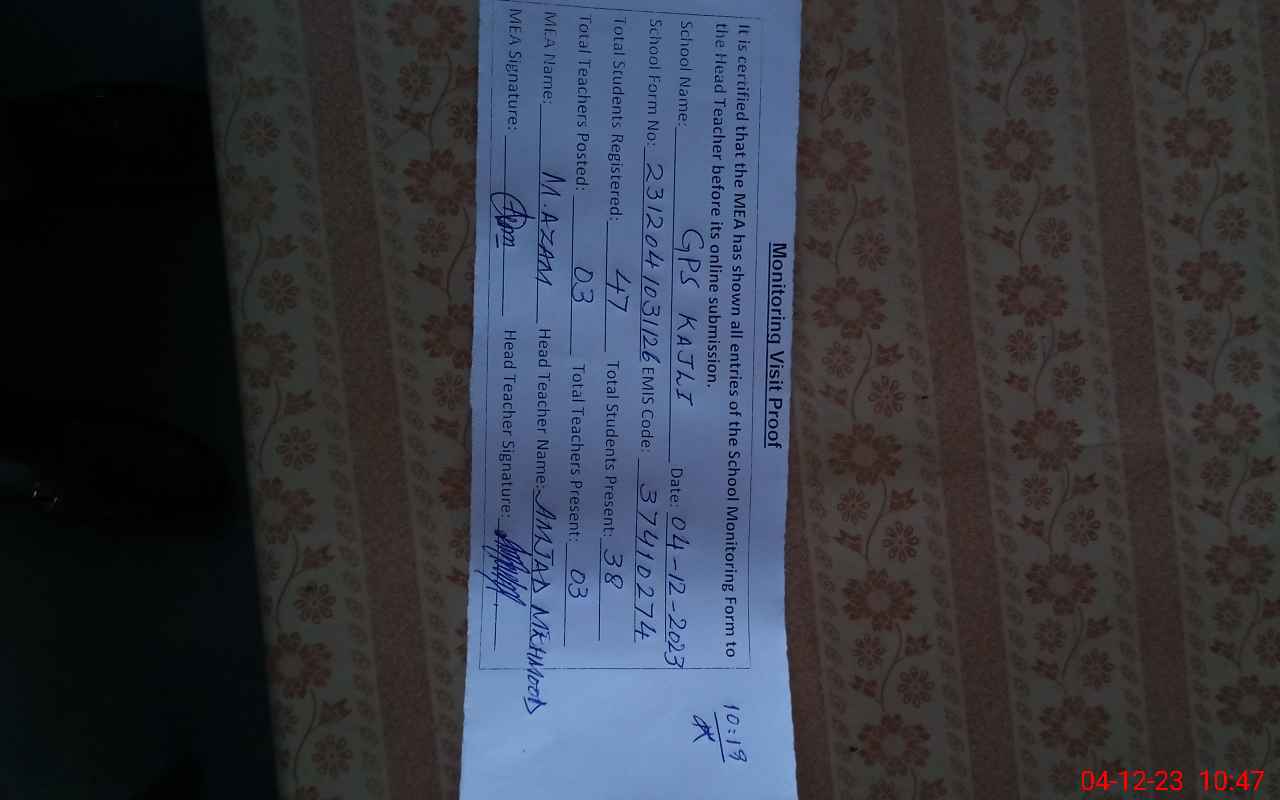 Monitoring Visit Proof
It is certified that the MEA has shown all entries of the School Monitoring Form to
the Head Teacher before its online submission.
School Name: GPS KAJLI Date: 04-12-2023
School Form No: 231204103126 EMIS Code: 37410274
Total Students Registered: 47 Total Students Present: 38
Total Teachers Posted: 03 Total Teachers Present: 03
MEA Name: M.AZAM Head Teacher Name: AMJAD MEHMOOD
MEA Signature: Head Teacher Signature:
10:19
04-12-23 10:47